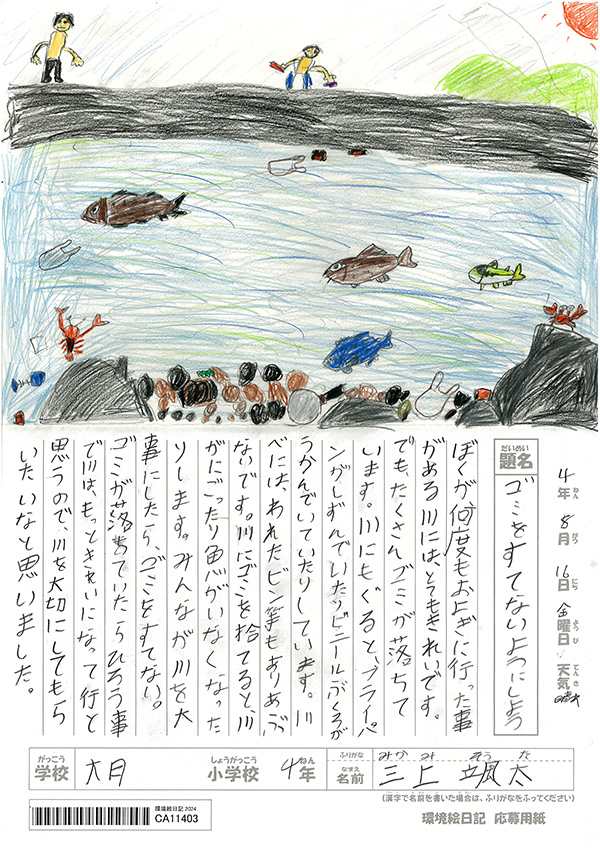 4年 8月 16日 金曜日 天気 晴れ
ねん がつ にち ようび てんき
だいめい
題名 ゴミをすてないようにしよう
ぼくが何度もおよぎに行った事
がある川には、とてもきれいです。
でも、たくさんゴミが落ちて
います。川にもぐると、フライパ
ンがしずんでいたりビニールぶくろが
うかんでいていたりしています。川
べには、われたビン等もありあぶ
ないです。川にゴミを捨てると、川
がにごったり魚がいなくなった
りします。みんなが川を大
事にしたら、ゴミをすてない。
ゴミが落ちていたらひろう事
で川は、もっときれいになって行くと
思うので、川を大切にしてもら
いたいなと思いました。
がっこう しょうがっこう ねん ふりがな みかみ そうた
学校 大月 小学校 4年 なまえ 名前 三上 颯太
(漢字で名前を書いた場合は、ふりがなをふってください)
環境絵日記 2024
CA11403
環境絵日記 応募用紙